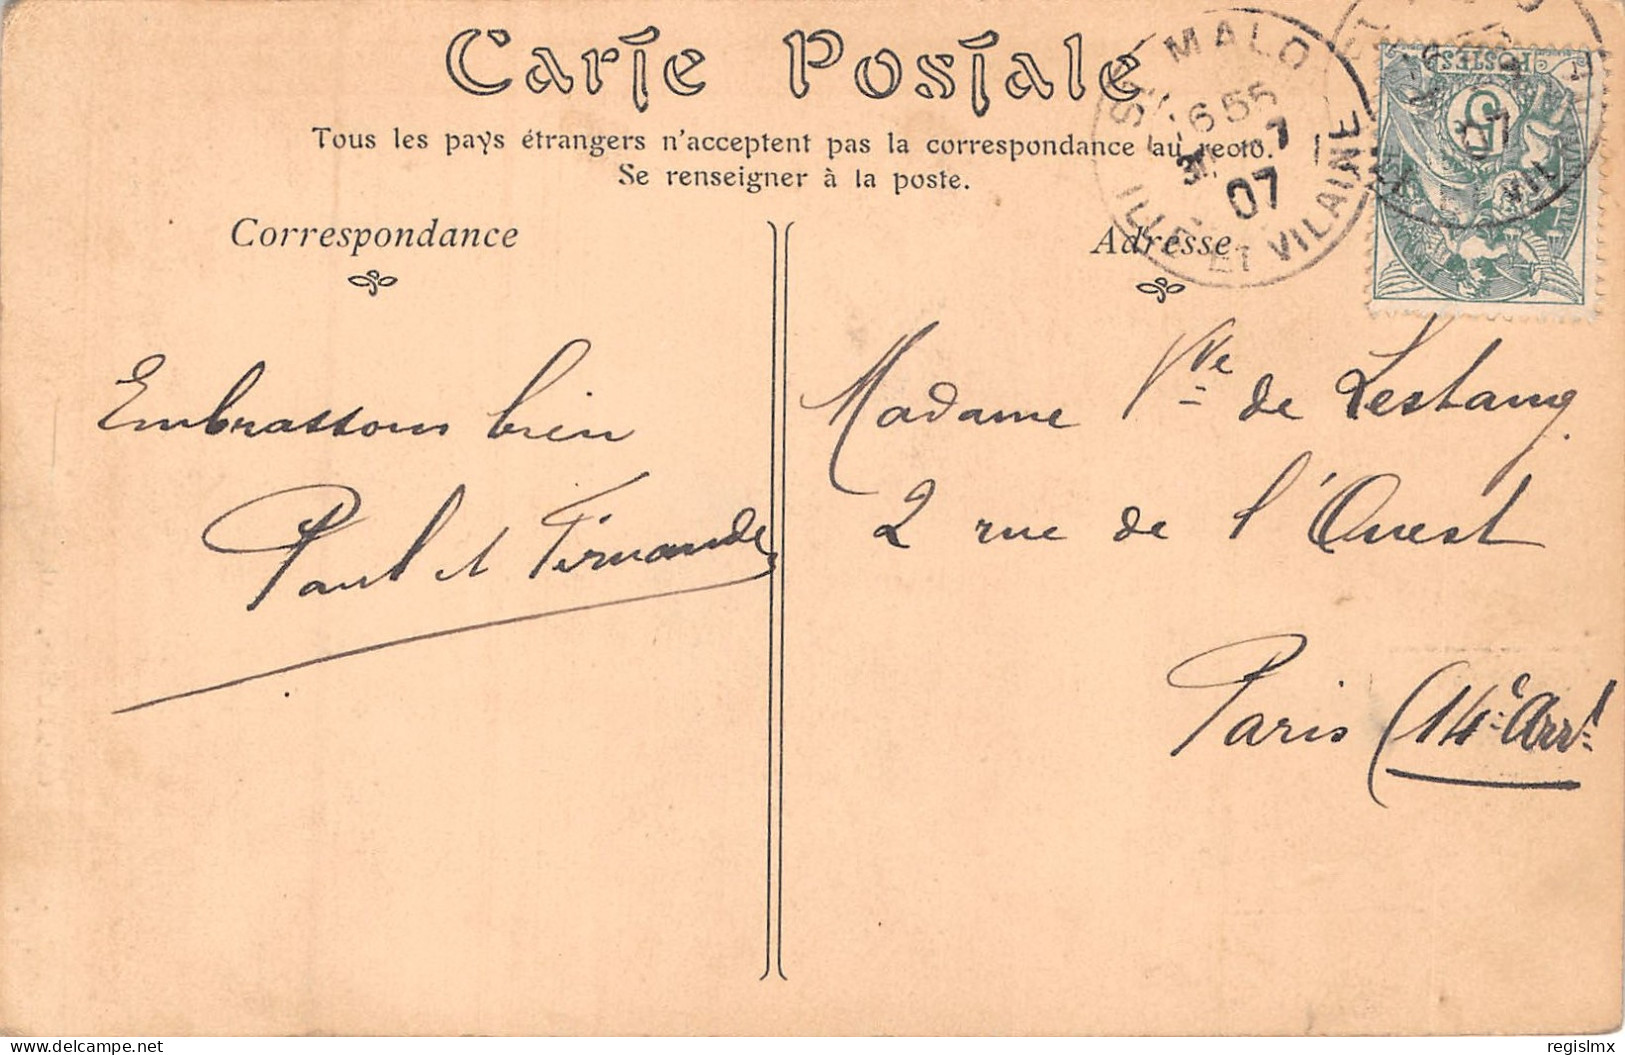 Carte Postale
Tous les pays étrangers n'acceptent pas la correspondance au recto.
Se renseigner à la poste.
Correspondance
Adresse
ST MALO
6 55
07
ILLE ET VILAINE
POSTES
5
07
Embrassons bien
Paul et Fernande
Madame Vve de Lestang
2 rue de l'Ouest
Paris (14e Arrt
delcampe.net
regislmx